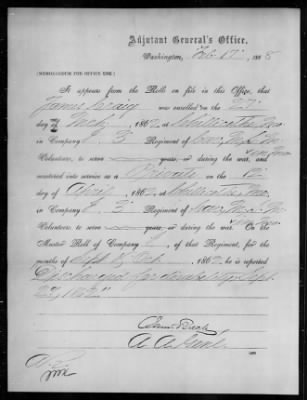 Adjutant General's Office,
Washington, Feb 17, 1888
(MEMORANDUM FOR OFFICE USE.)
It appears from the Rolls on file in this Office, that
James Craig was enrolled on the
day of 1862 at Chillicothe Mo
in Company 3 Regiment of Cav. M. S. M.
Volunteers, to serve years, or during the war, and
mustered into service as a Private on the 12
day of April, 1862, at Chillicothe Mo,
in Company 3 Regiment of Cav. M. S. M.
Volunteers, to serve years, or during the war. On the
Muster Roll of Company , of that Regiment, for the
months of Sept & Oct, 1862, he is reported
Discharged for disability Sept
27, 1862.
A. A. Genl.